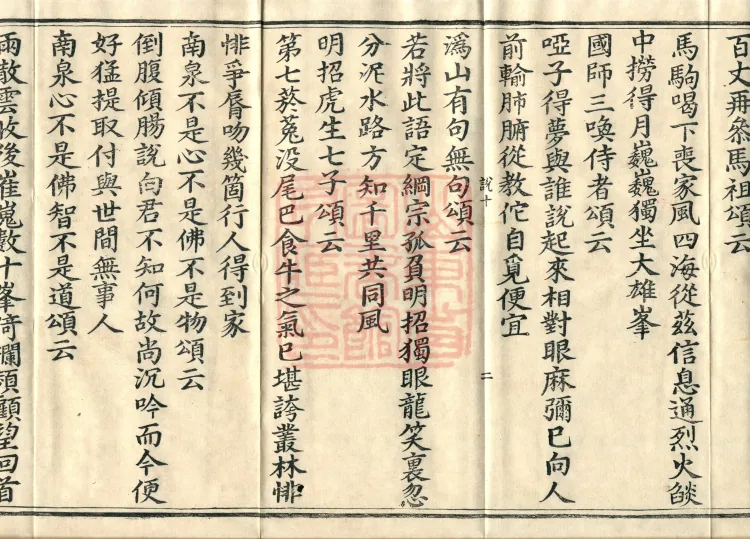 百丈再參馬祖頌云
馬駒喝下喪家風四海從茲信息通烈火燄
中撈得月巍巍獨坐大雄峯
國師三喚侍者頌云
啞子得夢與誰說起來相對眼麻彌已向人
前輸肺腑從教佗自覓便宜
溈山有句無句頌云
若將此語定綱宗孤負明招獨眼龍笑裏忽
分泥水路方知千里共同風
明招虎生七子頌云
第七菸菟沒尾巴食牛之氣已堪誇叢林悱
悱爭脣吻幾箇行人得到家
南泉不是心不是佛不是物頌云
倒腹傾腸說向君不知何故尚沉吟而今便
好猛提取付與世間無事人
南泉心不是佛智不是道頌云
雨散雲收後崔嵬數十峯倚欄頻顧望回首
說十
二